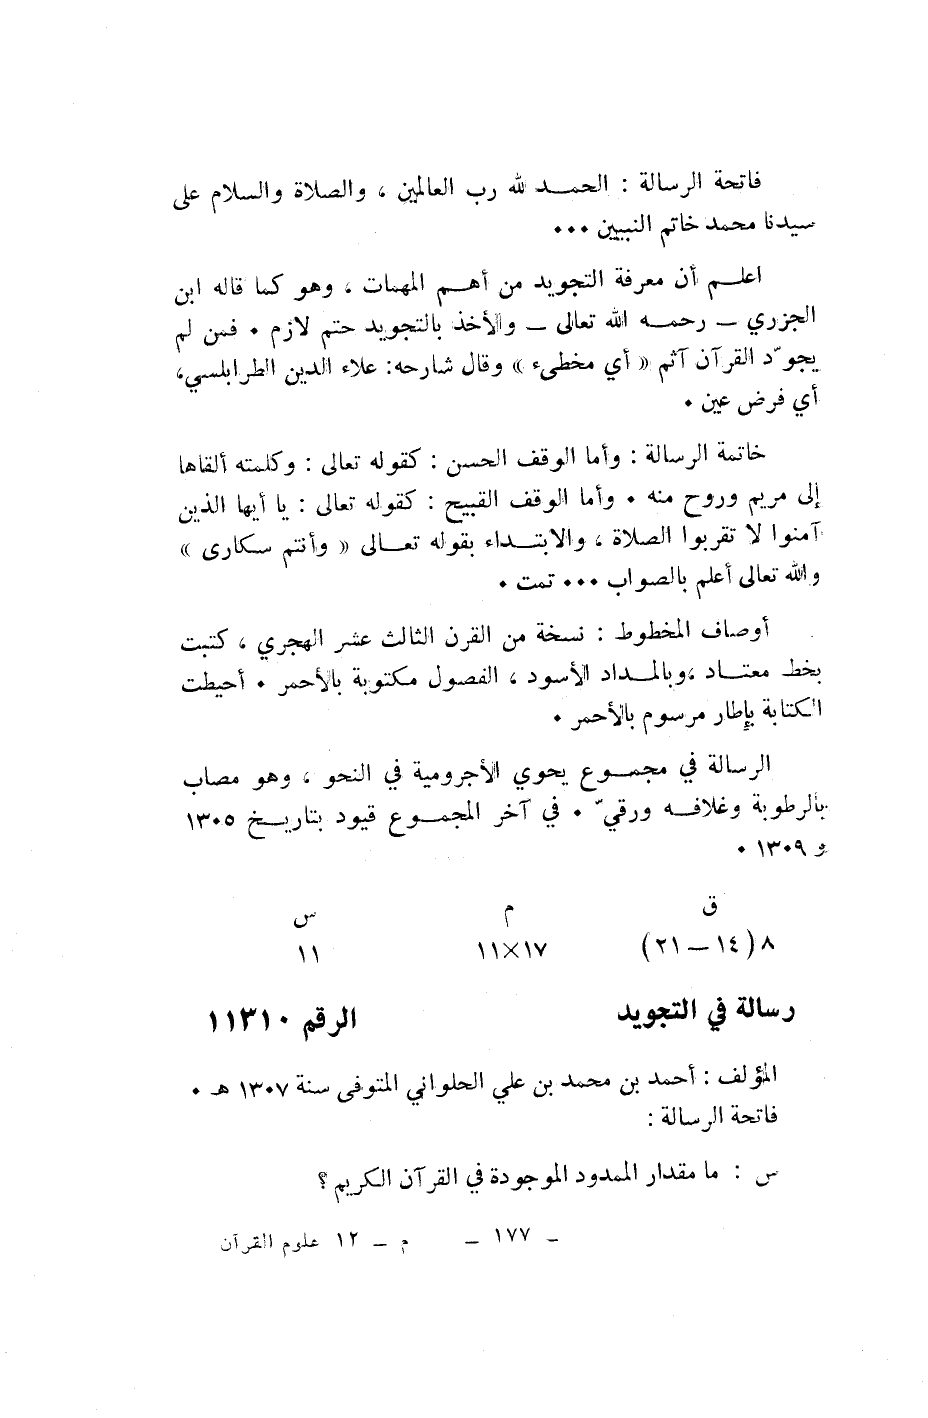 فاتحة الرسالة : الحمــد لله رب العالمين ، والصلاة والسلام على
سيدنا محمد خاتم النبيين ٠٠٠
اعلــم أن معرفة التجويد من أهــم المهمات ، وهو كما قاله ابن
الجزري ــ رحمــه الله تعالى ــ والأخذ بالتجويد حتم لازم ٠ فمن لم
يجوّد القرآن آثم « أي مخطىء » وقال شارحه: علاء الدين الطرابلسي،
أي فرض عين ٠
خاتمة الرسالة : وأما الوقف الحسن : كقوله تعالى : وكلمته ألقاها
إلى مريم وروح منه ٠ وأما الوقف القبيح : كقوله تعالى : يا أيها الذين
آمنوا لا تقربوا الصلاة ، والابتــداء بقوله تعــالى « وأنتم سكارى »
والله تعالى أعلم بالصواب ٠٠٠ تمت ٠
أوصاف المخطوط : نسخة من القرن الثالث عشر الهجري ، كتبت
بخط معتــاد ،وبالمــداد الأسود ، الفصول مكتوبة بالأحمر ٠ أحيطت
الكتابة بإطار مرسوم بالأحمر ٠
الرسالة في مجمــوع يحوي الأجرومية في النحو ، وهو مصاب
بالرطوبة وغلافــه ورقيّ ٠ في آخر المجمــوع قيود بتاريــخ ١٣٠٥
و ١٣٠٩ ٠
ق م س
٨ (١٤ ــ ٢١) ١٧×١١ ١١
رسالة في التجويد الرقم ١١٣١٠
المؤلف : أحمد بن محمد بن علي الحلواني المتوفى سنة ١٣٠٧ هـ ٠
فاتحة الرسالة :
س : ما مقدار الممدود الموجودة في القرآن الكريم ؟
ــ ١٧٧ ــ م ــ ١٢ علوم القرآن